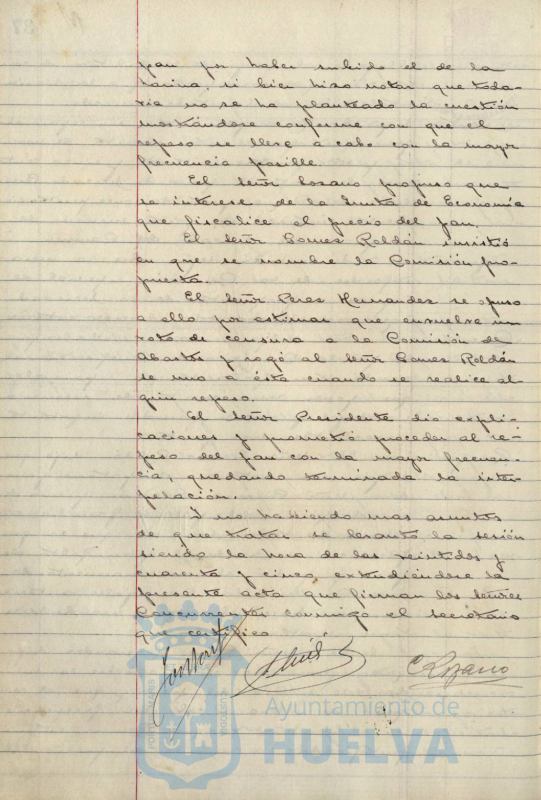 pan por haber subido el de la
harina, si bien hizo notar que toda-
via no se ha planteado la cuestión
mostrándose conforme con que el
repeso se lleve a cabo con la mayor
frecuencia posible.
El Señor Lozano propuso que
se interese de la Junta de Economía
que fiscalice el precio del pan.
El Señor Gomez Roldán insistió
en que se nombre la Comisión pro-
puesta.
El Señor Perez Hernandez se opuso
a ello por estimar que envuelve un
voto de censura a la Comisión de
Abastos y rogó al Señor Gomez Roldán
se una a ésta cuando se realice al-
gún repeso.
El Señor Presidente dio expli-
caciones y prometió proceder al re-
peso del pan con la mayor frecuen-
cia, quedando terminada la inter-
pelación.
Y no habiendo mas asuntos
de que tratar se levantó la sesión
siendo la hora de las veintidos y
cuarenta y cinco, extendiéndose la
presente acta que firman los Señores
Concurrentes conmigo el Secretario
que certifico
C Lozano
Ayuntamiento de
HUELVA